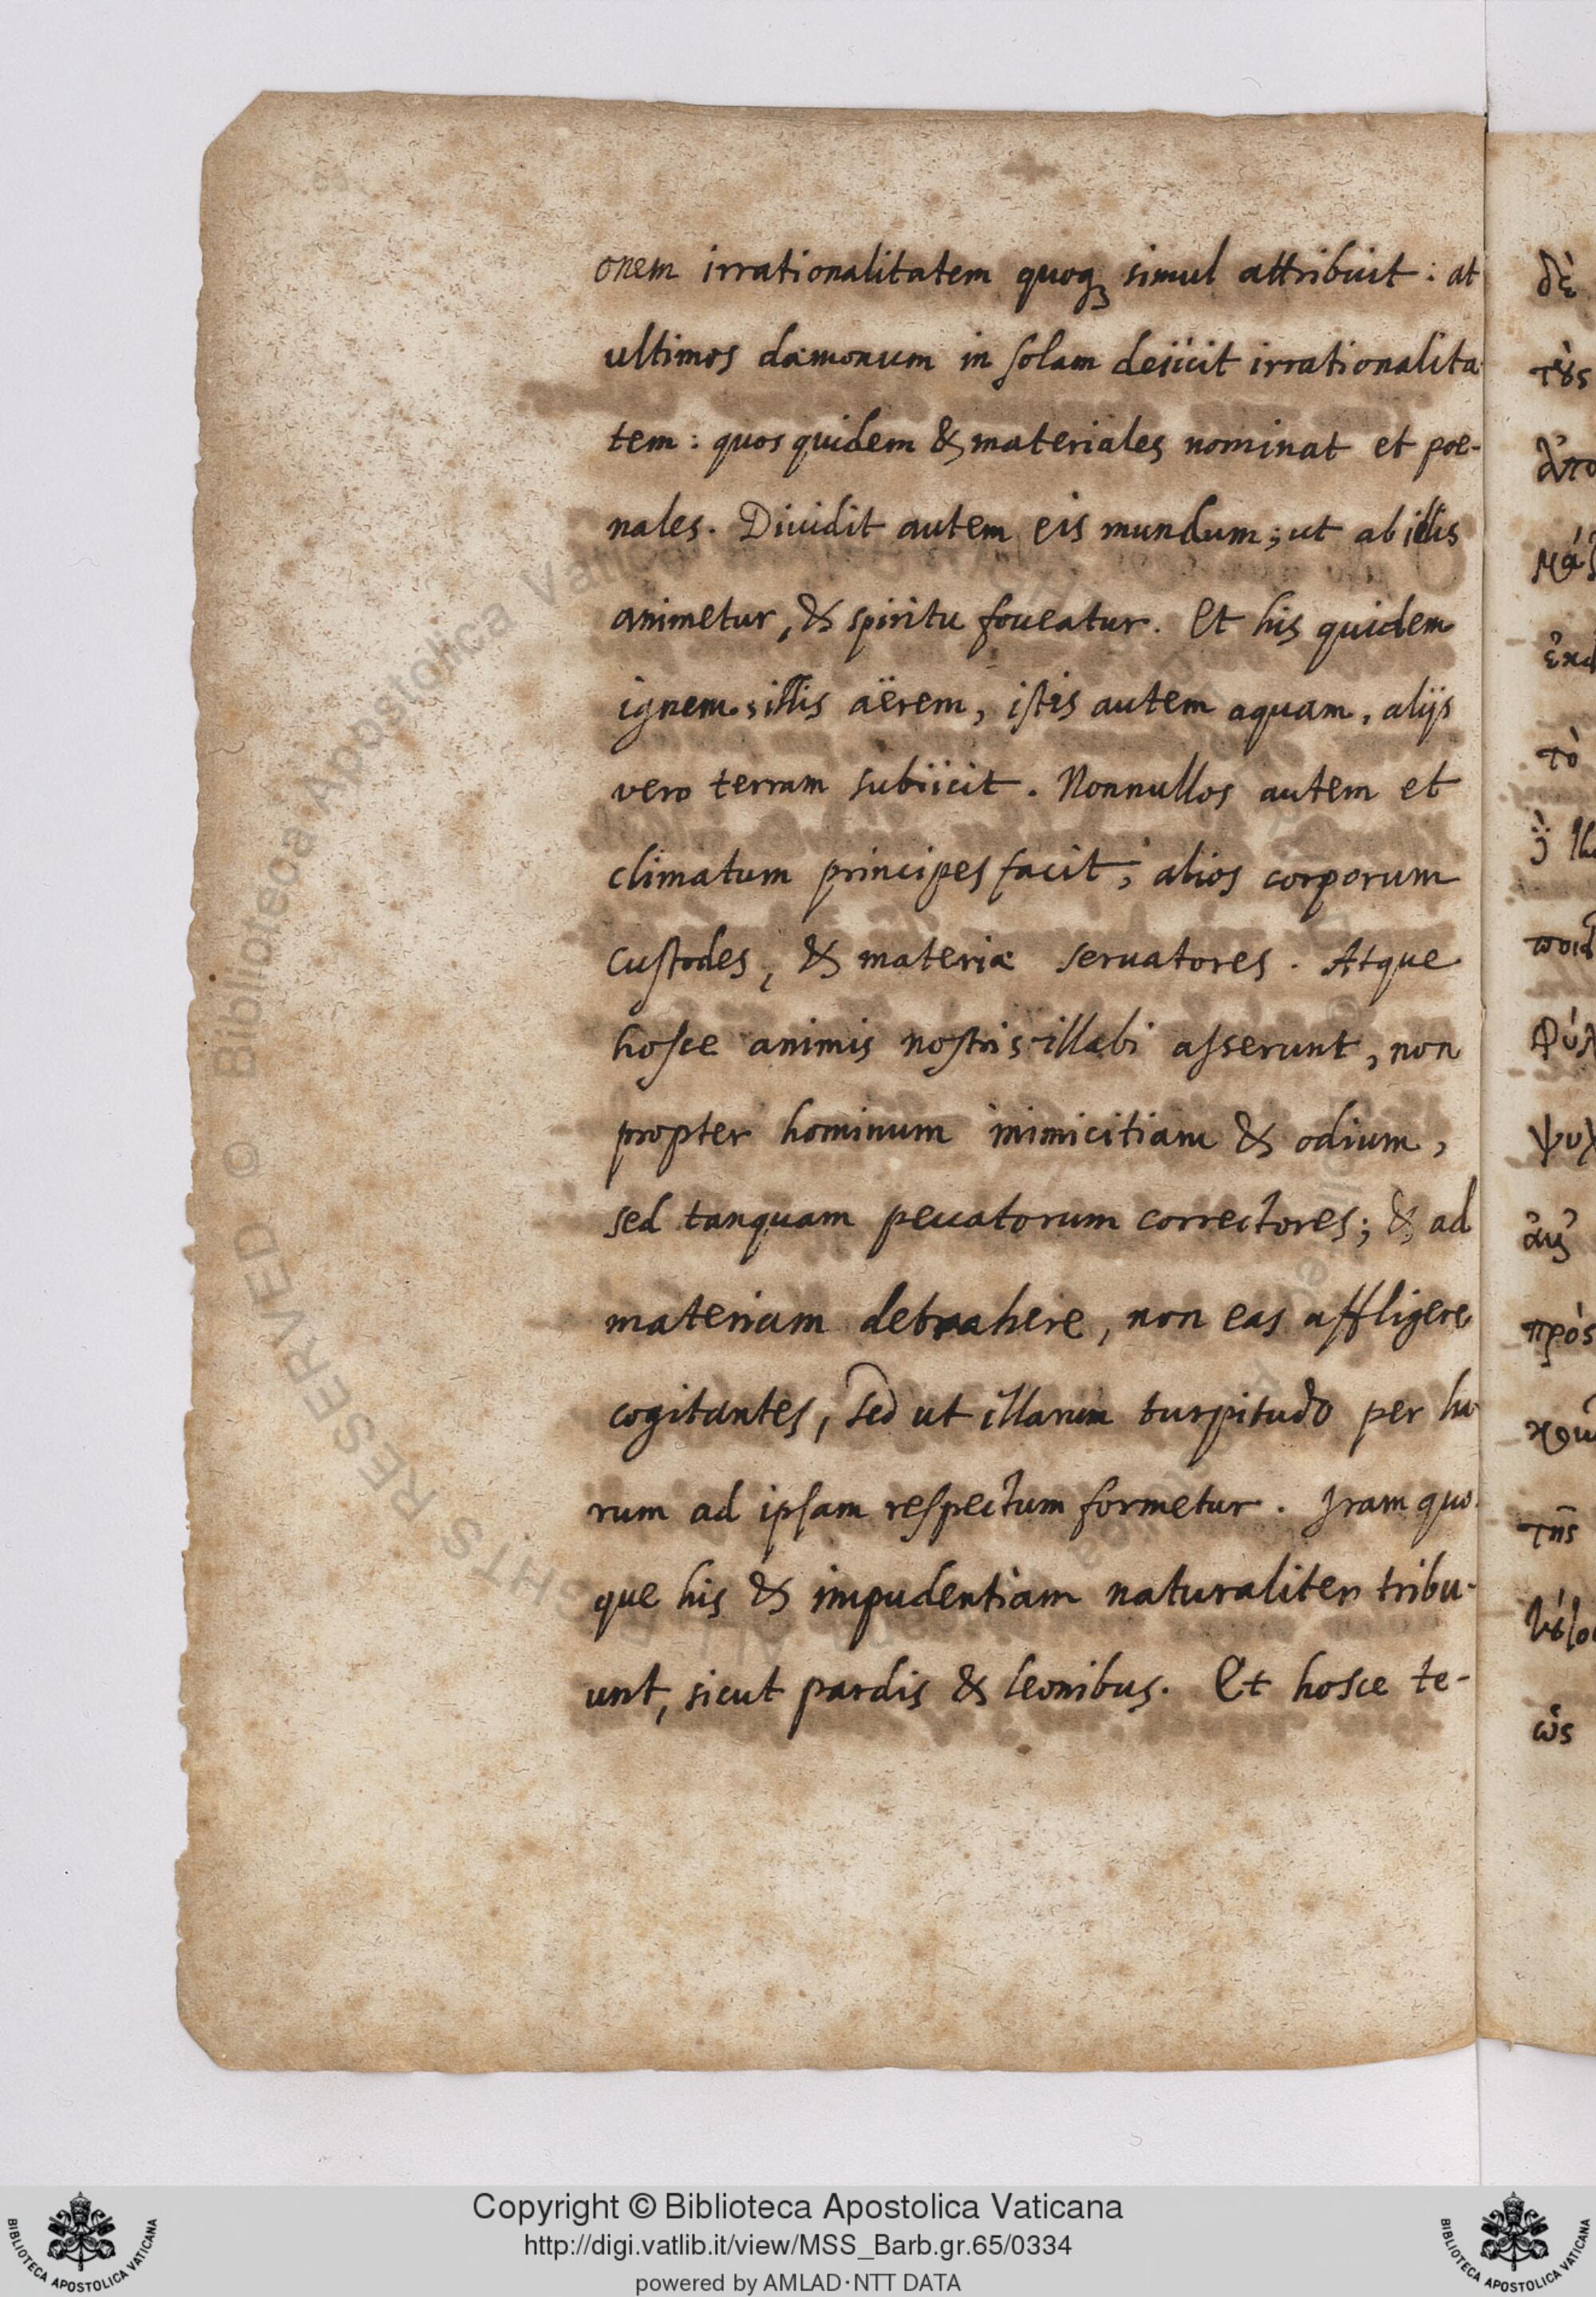 onem irrationalitatem quoq; simul attribuit : at
ultimos dæmonum in solam deijcit irrationalita-
tem : quos quidem & materiales nominat et poe-
nales. Diuidit autem eis mundum; ut ab illis
animetur, & spiritu foueatur. Et his quidem
ignem, illis aërem, istis autem aquam, alijs
vero terram subiicit. Nonnullos autem et
climatum principes facit; alios corporum
custodes, & materiæ seruatores. Atque
hosce animis nostris illabi asserunt, non
propter hominum inimicitiam & odium,
sed tanquam peccatorum correctores; & ad
materiam detrahere, non eas affligere
cogitantes, sed ut illarum turpitudo per ha-
rum ad ipsam respectum formetur. Iram quo-
que his & impudentiam naturaliter tribu-
unt, sicut pardis & leonibus. Et hosce te-
δὲ
τὸ
πρὸς
τῆς
ὡς
© Biblioteca Apostolica Vaticana
RIGHTS RESERVED
Copyright © Biblioteca Apostolica Vaticana
http://digi.vatlib.it/view/MSS_Barb.gr.65/0334
powered by AMLAD·NTT DATA
BIBLIOTECA APOSTOLICA VATICANA
BIBLIOTECA APOSTOLICA VATICANA